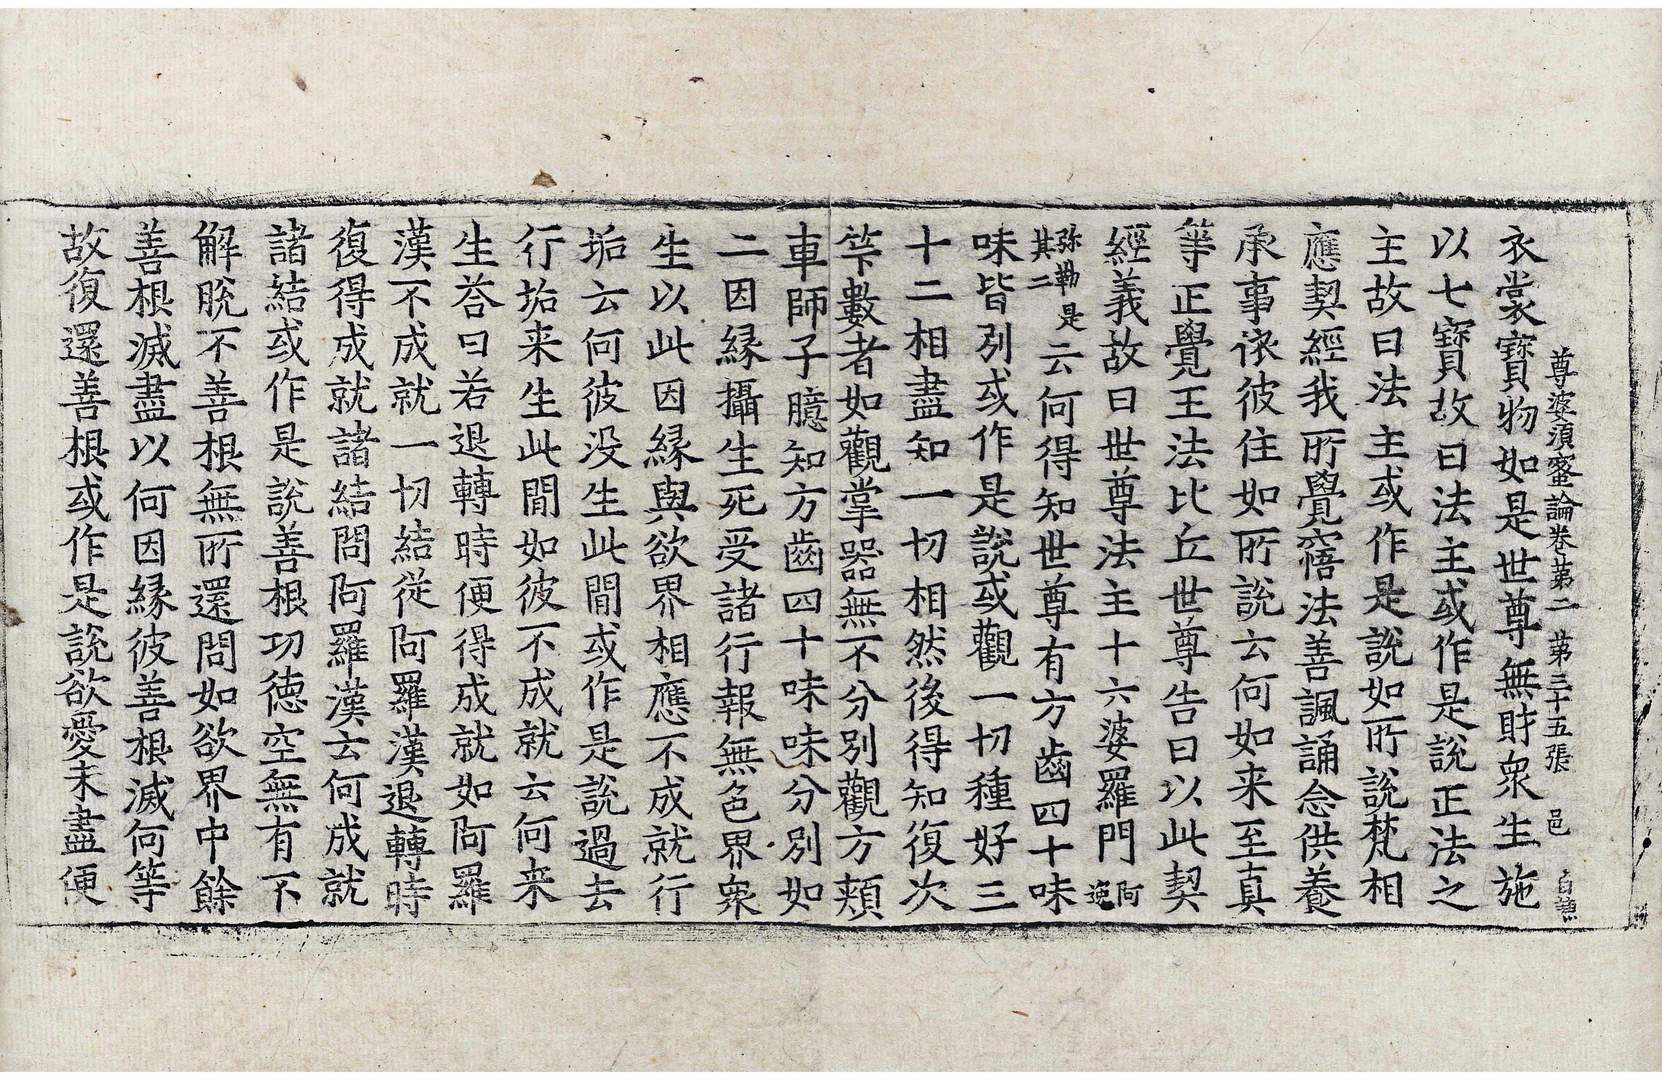 尊婆須蜜論卷第二 第三十五張 邑
衣裳寶物如是世尊無財衆生施
以七寶故曰法主或作是説正法之
主故曰法主或作是說如所說梵相
應契經我所覺寤法善諷誦念供養
承事依彼住如所說云何如来至真
等正覺王法比丘世尊告曰以此契
經義故曰世尊法主十六婆羅門阿逸
弥勒是其二云何得知世尊有方齒四十味
味皆別或作是說或觀一切種好三
十二相盡知一切相然後得知復次
等數者如觀掌器無不分別觀方頬
車師子臆知方齒四十味味分別如
二因緣攝生死受諸行報無色界衆
生以此因緣與欲界相應不成就行
垢云何彼没生此間或作是説過去
行垢来生此間如彼不成就云何来
生荅曰若退轉時便得成就如阿羅
漢不成就一切結從阿羅漢退轉時
復得成就諸結問阿羅漢云何成就
諸結或作是説善根功德空無有不
解脫不善根無所還問如欲界中餘
善根滅盡以何因緣彼善根滅何等
故復還善根或作是説欲愛未盡便